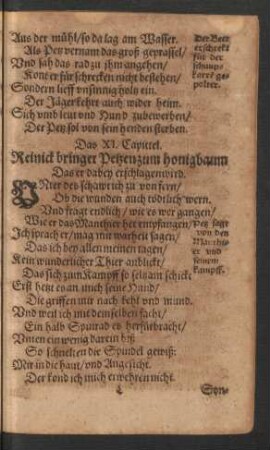 Aus der mühl / so da lag am Wasser.
Als Petz vernam das groß geprassel /
Vnd sah das rad zu ihm angehen /
Kont er für schrecken nicht bestehen /
Sondern lieff vnsinnig holtz ein.
Der Jägerkehrt auch wider heim.
Sich vnd sein Hund
Der Petz sol von sein henden sterben.
Der Beer
erschrekt
für der
korrs ge-
polter.
Das XI. Capittel.
Reinick bringet Petzen zum honigbaum
Das er dabey erschlagen wird.
Ob die wunden auch tödtlich wern.
Vnd fragt endlich / wie es wer gangen /
Wie er das Manthier het empfangen /
Petz sagt
von den
Manthi-
er vnd
seinem
kampff.
Ich sprach er / mag mit warheit sagen /
Das ich bey allen meinen tagen /
Kein wunderlicher Thier anblickt /
Das sich zum Kampff so seltzam schickt
Erst hetzt es an mich seine Hund /
Die griffen mir nach keht vnd mund.
Vnd weil ich mit demselben facht /
Ein halb Spinrad es herfürbracht /
Vnten ein wenig darein
So schnelten die Spindel gewiß:
Mir in die haut / vnd Angesicht.
Der kond ich mich erwehren nicht.
Syn-